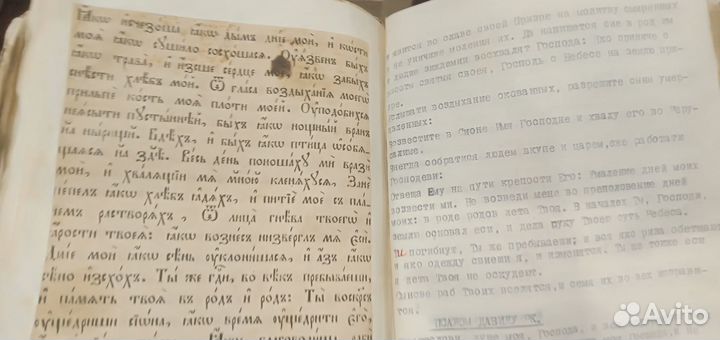 Ꙗкѡ и҆счезоша ꙗ҆кѡ дымъ днїе мои, и҆ кѡсти
моѧ ꙗ҆кѡ сꙋшило сосхошасѧ. Оу҆ꙗзвенъ быхъ
ꙗкѡ трава, и҆ и҆зсше сердце мое ꙗ҆кѡ забыхъ
снѣсти хлѣбъ мой. Ѿ гласа воздыханїѧ моегѡ
прильпе кость моѧ плоти моей. Оуподобихсѧ
неѧсыти пꙋстыннѣй, быхъ ꙗкѡ нощный вранъ
на нырищи. Бдѣхъ, и быхъ ꙗкѡ птица ѡсобѧ-
щаѧсѧ на здѣ. Весь день поношахꙋ ми врази
мои, и хвалѧщїи мѧ мною кленѧхꙋсѧ. Занѐ
пепелъ ꙗкѡ хлѣбъ ꙗдѧхъ, и питїе мое съ пла-
чемъ растворѧхъ, Ѿ лица гнѣва твоегѡ и
ꙗрости твоеѧ: ꙗкѡ вознесъ низверглъ мѧ еси.
Днїе мои ꙗкѡ сѣнь оуклонишасѧ, и азъ ꙗкѡ
сѣно изсхохъ. Ты же гди, во вѣкъ пребываеши,
и памѧть твоѧ въ родъ и родъ: Ты воскресъ
оущедриши сїѡна, ꙗкѡ времѧ оущедрити єгѡ,
во славе своей Призре на молитву смиренных
не уничижи моления их. Да напишется сие в род ин
и людие зиждемии восхвалят Господа: Яко приниче с
высоты святыя своея, Господь с Небесе на землю призре
Услышати воздыхание окованных, разрешити сыны умер-
щвленных:
возвестити в Сионе Имя Господне и хвалу его во Иеру-
салиме.
Внегда собратися людем вкупе и царем, еже работати
Господеви:
Отвеща Ему на пути крепости Его: Умаление дней моих
возвести ми. Не возведи мене во преполовение дней
моих: в роде родов лета Твоя. В началех Ты, Господи,
землю основал еси, и дела руку Твоею суть Небеса.
Ты погибнут, Ты же пребываеши: и вся яко риза обетшают
и яко одежду свиеши я, и изменятся. Ты же тожде еси
и лета Твоя не оскудеют.
Сынове раб Твоих вселятся, и семя их во век исправи-
ПСАЛОМ ДАВИДУ
душе моя, Господа, и вся
Avito